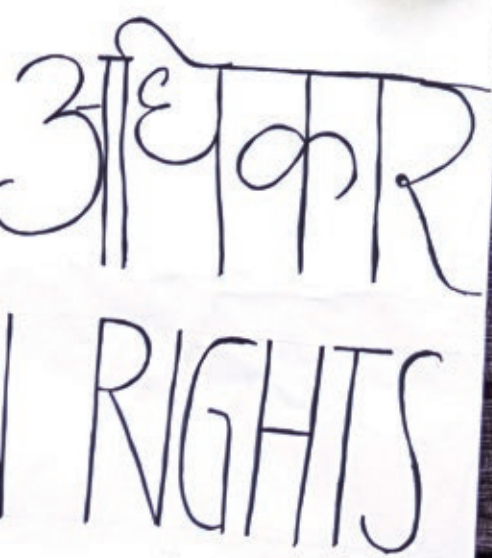 अधिकार
RIGHTS